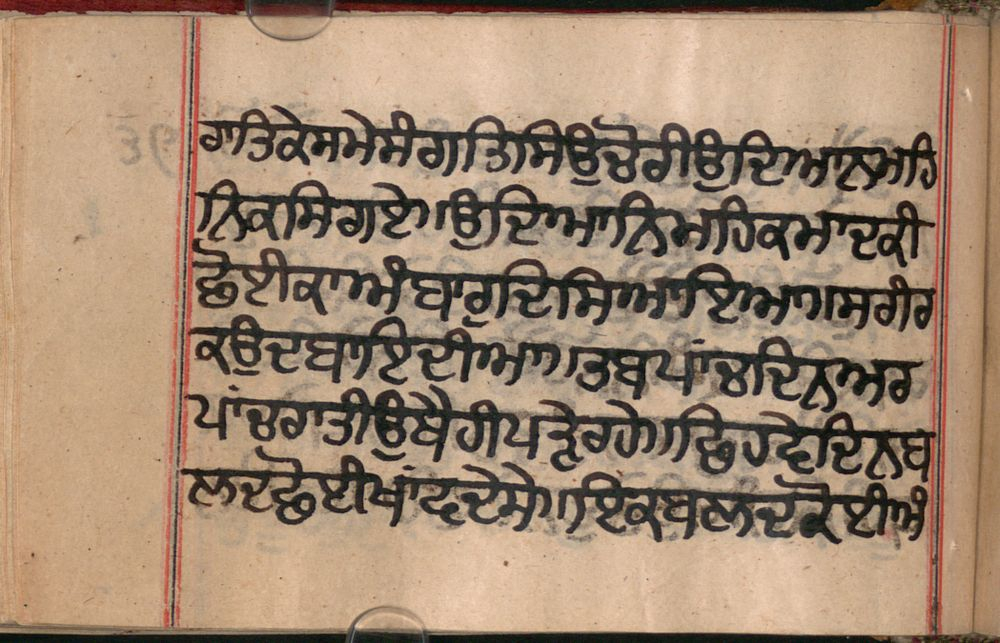 ਰਾਤਿਕੇਸਮੇਸੰਗਤਿਸਿਉਚੋਰੀਉਦਿਆਨਮਹਿ
ਨਿਕਸਿਗਏ॥ਉਦਿਆਨਿਮਹਿਕਮਾਦਕੀ
ਛੋਈਕਾਅੰਬਾਰੁਦਿਸਿਆਇਆ॥ਸਰੀਰ
ਕਉਦਬਾਇਦੀਆ॥ਤਬਪਾਂਚਦਿਨਅਰ
ਪਾਂਚਰਾਤੀਉਥੈਹੀਪੜੇਰਹੇ॥ਛਿਹਵੇਦਿਨਬ
ਲਦਛੋਈਖਾਂਵਦੇਸੇ॥ਇਕਬਲਦਕੋਈਅੰ